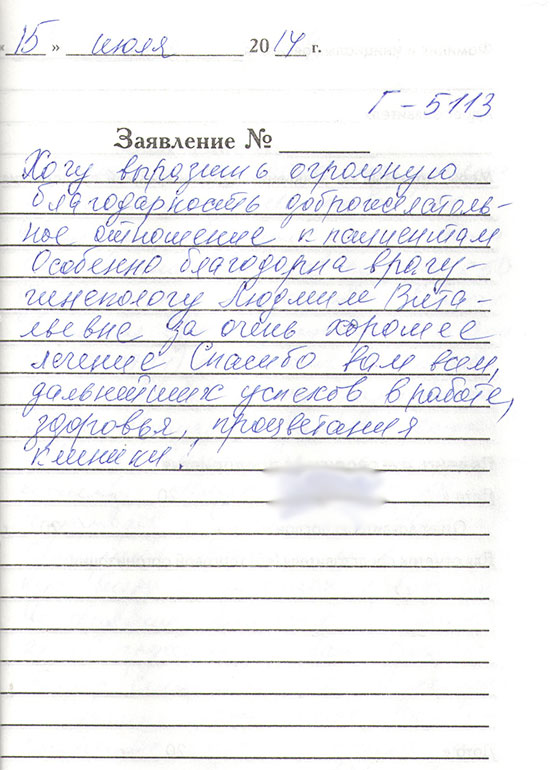 « 15 » июля 2014 г.
Г – 5113
Заявление № ______
Хочу выразить огромную
благодарность доброжелатель-
ное отношение к пациентам
Особенно благодарна врачу-
гинекологу Людмиле Вита-
льевне за очень хорошее
лечение Спасибо вам всем,
дальнейших успехов в работе,
здоровья, процветания
клиники!